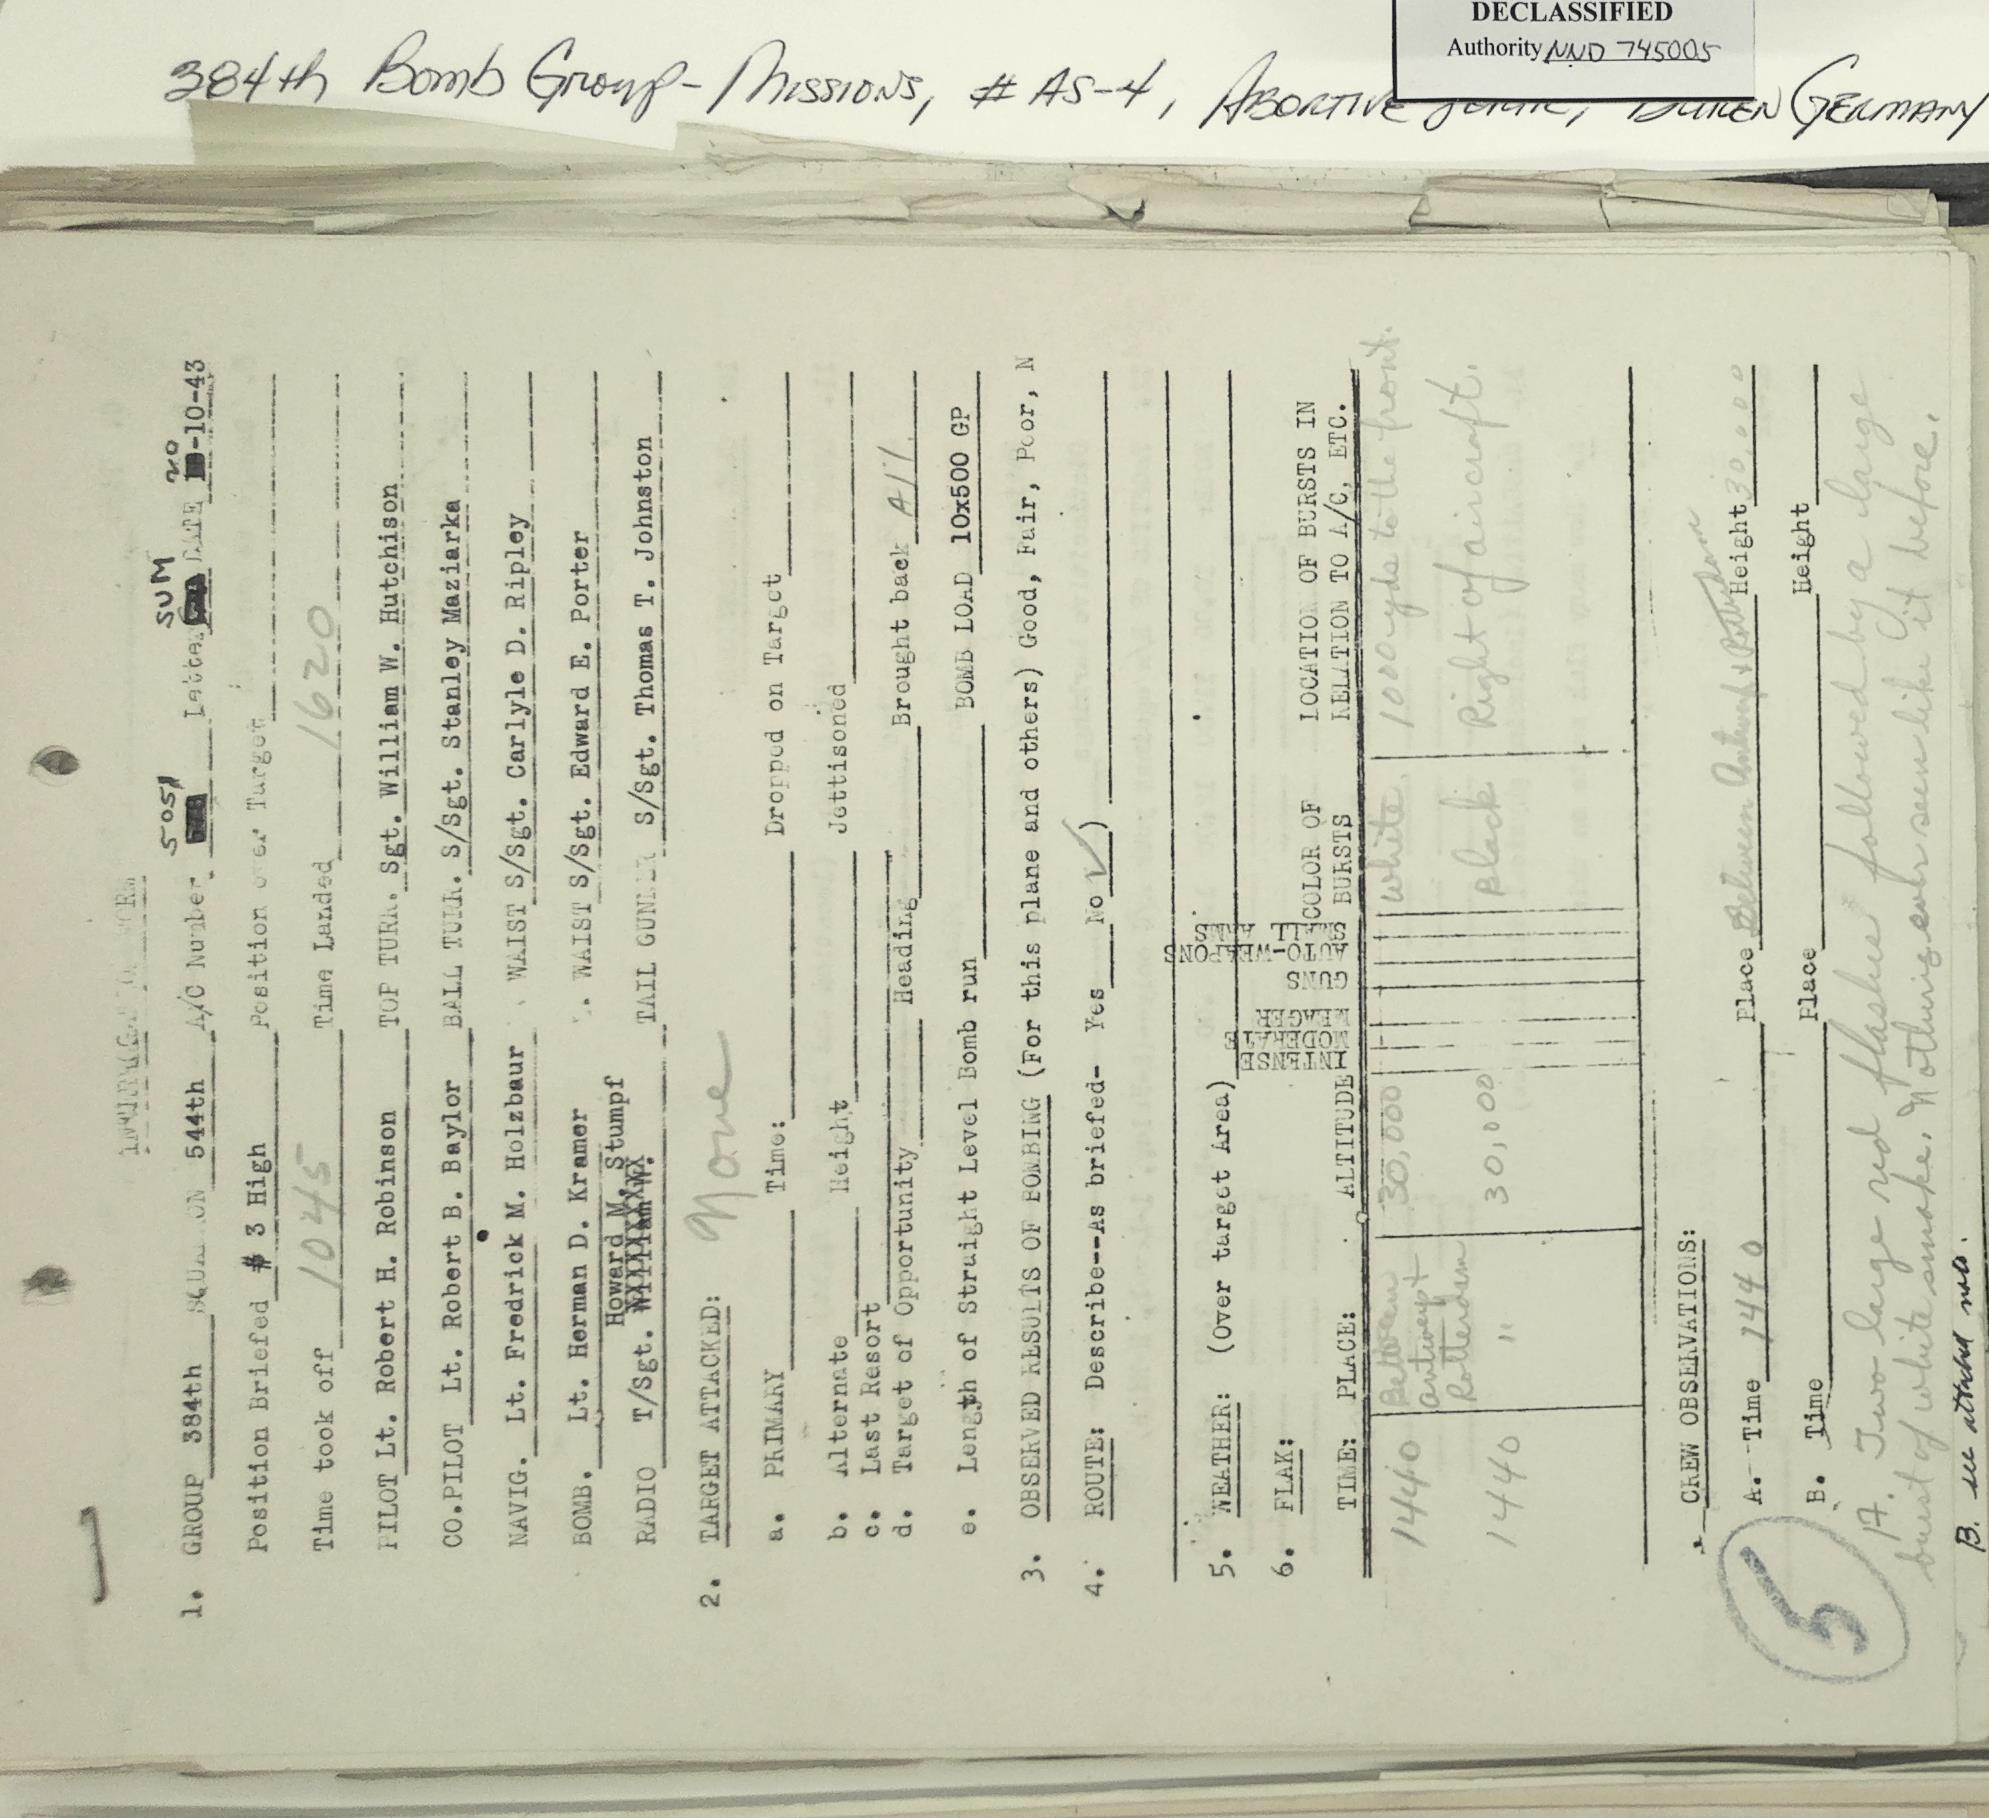 DECLASSIFIED
Authority NND 745005
384th Bomb Group - Missions, # AS-4, Abortive Sortie, Duren Germany
INTERROGATION FORM
1. GROUP 384th SQUADRON 544th A/C Number 5051 Letter SUM DATE 20-10-43
Position Briefed # 3 High Position over Target
Time took off 1045 Time Landed 1620
PILOT Lt. Robert H. Robinson TOP TURR. Sgt. William W. Hutchison
CO.PILOT Lt. Robert B. Baylor BALL TURR. S/Sgt. Stanley Maziarka
NAVIG. Lt. Fredrick M. Holzbaur WAIST S/Sgt. Carlyle D. Ripley
BOMB. Lt. Herman D. Kramer WAIST S/Sgt. Edward E. Porter
Howard M. Stumpf
RADIO T/Sgt. William W. TAIL GUNNER S/Sgt. Thomas T. Johnston
2. TARGET ATTACKED: None
a. PRIMARY Time: Dropped on Target
b. Alternate Height Jettisoned
c. Last Resort
d. Target of Opportunity Heading Brought back All
e. Length of Straight Level Bomb run BOMB LOAD 10x500 GP
3. OBSERVED RESULTS OF BOMBING (For this plane and others) Good, Fair, Poor, N
4. ROUTE: Describe--As briefed- Yes No ✓)
5. WEATHER: (Over target Area)
6. FLAK:
TIME: PLACE: ALTITUDE INTENSE MODERATE MEAGER GUNS AUTO-WEAPONS SMALL ARMS COLOR OF BURSTS LOCATION OF BURSTS IN RELATION TO A/C, ETC.
1440 Between Antwerp + Rotterdam 30,000 White 1000 yds to the front.
1440 " 30,000 Black Right of aircraft.
CREW OBSERVATIONS:
A. Time 1440 Place Between Antwerp & Rotterdam Height 30,000
B. Time Place Height
A. Two large red flashes followed by a large
burst of white smoke. Nothing ever seen like it before.
B. see attached note.
5